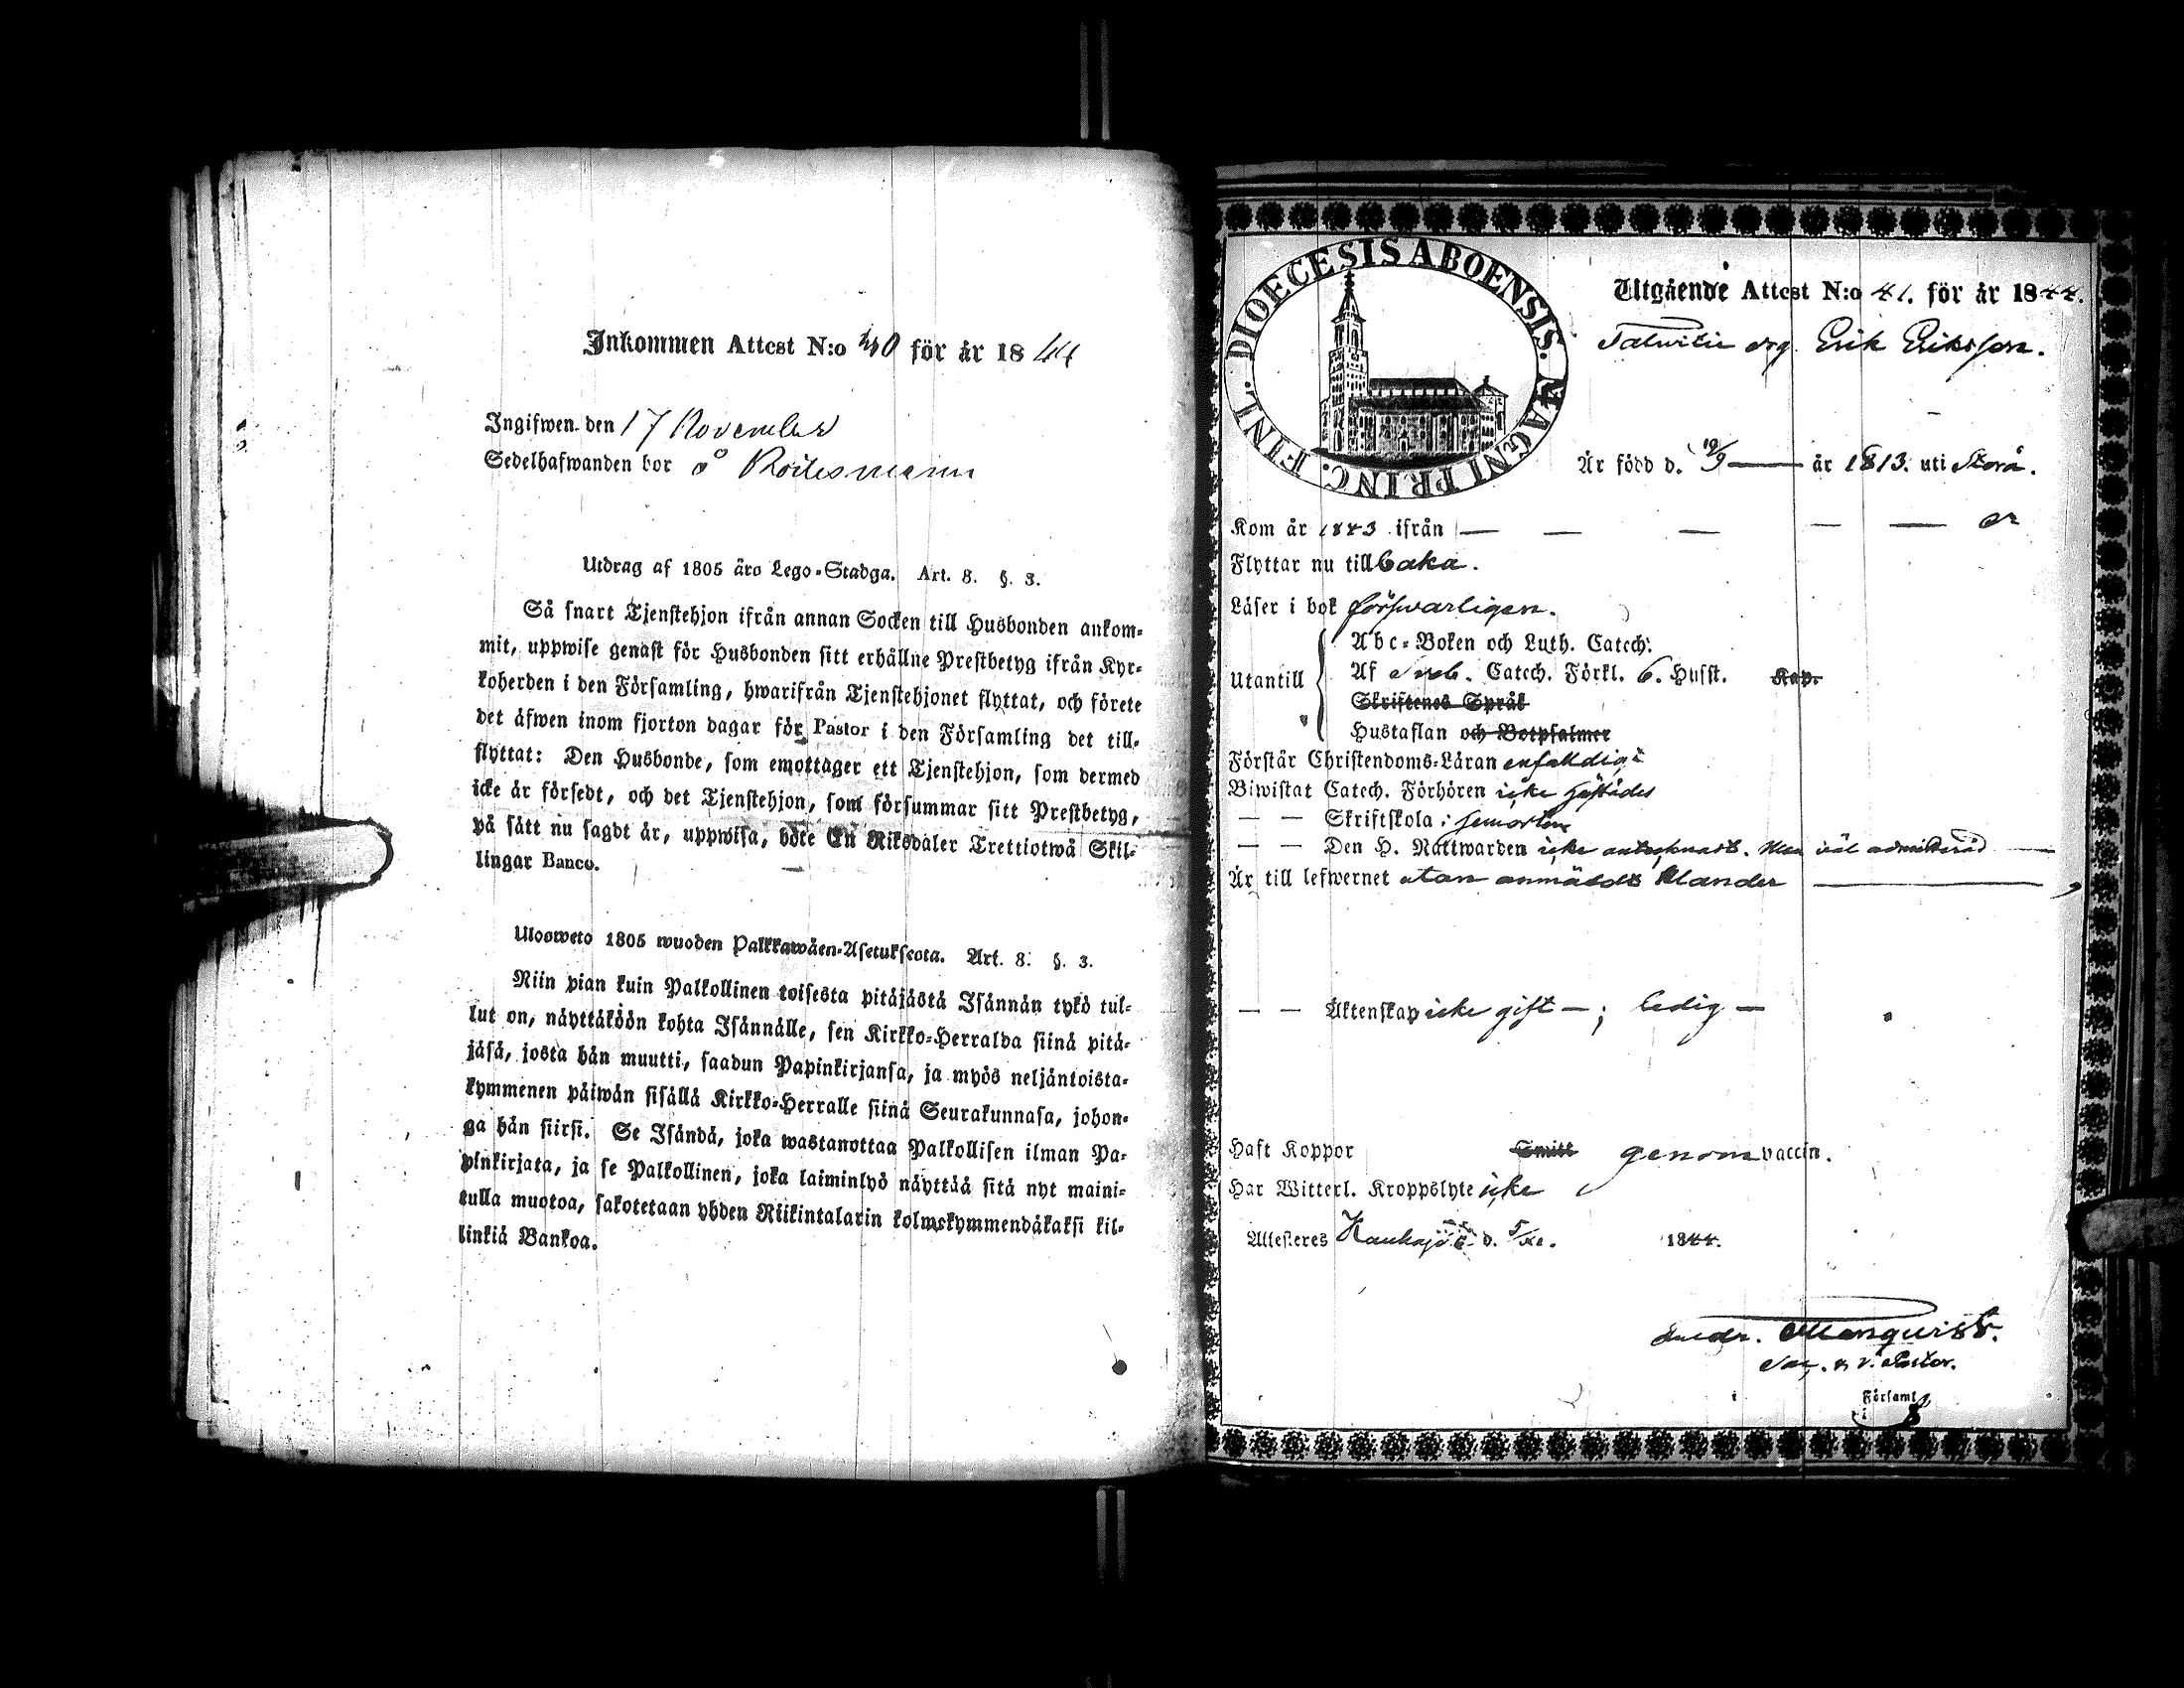 Inkommen Attest N:o 40 för år 1844
Ingifwen den 17 November
Sedelhafwanden bor å
Utdrag af 1805 års Lego-Stadga. Art. 8. §. 3.
Så snart Tjenstehjon ifrån annan Socken till Husbonden ankom-
mit, uppwise genast för Husbonden sitt erhållne Prestbetyg ifrån Kyr-
koherden i den Församling, hwarifrån Tjenstehjonet flyttat, och förete
det äfwen inom fjorton dagar för Pastor i den Församling det till-
flyttat: Den Husbonde, som emottager ett Tjenstehjon, som dermed
icke är försedt, och det Tjenstehjon, som försummar sitt Prestbetyg,
på sätt nu sagdt är, uppwisa, böte En Riksdaler Trettiotwå Skil-
lingar Banco.
Ulosweto 1805 wuoden Palkkawäen-Asetuksesta. Art. 8. §. 3.
Niin pian kuin Palkollinen toisesta pitäjästä Isännän tykö tul-
lut on, näyttäköön kohta Isännälle, sen Kirkko-Herralda siinä pitä-
jäsä, josta hän muutti, saadun Papinkirjansa, ja myös neljäntoista-
kymmenen päiwän sisällä Kirkko-Herralle siinä Seurakunnasa, johon-
ga hän siirsi. Se Isändä, joka wastanottaa Palkollisen ilman Pa-
pinkirjata, ja se Palkollinen, joka laiminlyö näyttää sitä nyt maini-
tulla muotoa, sakotetaan yhden Riikintalarin kolmekymmendäkaksi kil-
linkiä Bankoa.
DIOECESIS ABOENSIS. MAGNI PRINC. FINL.
Utgående Attest N:o 41. för år 1844.
drg Erik Eriksson.
Är född d. 19/9 — år 1813. uti Storå.
Kom år 1843 ifrån — — — — — or
Flyttar nu till baka.
Läser i bok försvarligen.
Utantill
Abc-Boken och Luth. Catech.
Af Sveb. Catech. Förkl. 6. Husst. Kap.
Skriftenes Språk
Hustaflan och Botpsalmer
Förstår Christendoms-Läran enfaldigt
Biwistat Catech. Förhören icke
— — Skriftskola
— — Den H. Nattwarden icke antecknadt. Men väl admitterad —
Är till lefwernet utan anmäldt klander —
— — Äktenskap icke gift — ; ledig —
Haft Koppor Smitt genom vaccin.
Har Witterl. Kroppslyte icke
Attesteres Kauhajoki d. 5/XI. 1844.
Past. v. Pastor.
i Församl